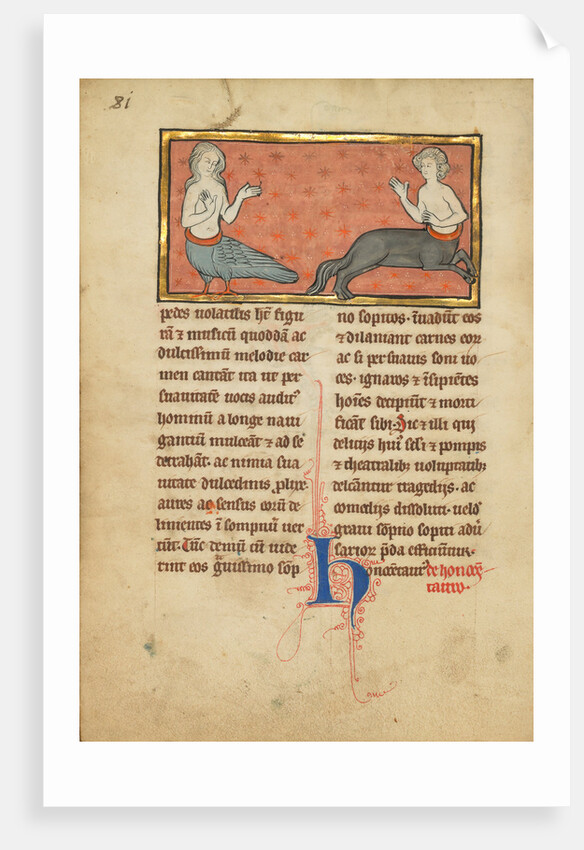 81
pedes uolatilis hr̄t figu
rā ⁊ musicū quoddā ac
dulcissimū melodie car
men cantāt ita ut per
suauitatē uocis auditꝰ
hominū a longe naui
gantiū mulceāt ⁊ ad se
detrahāt. ac nimia sua
uitate dulcedinis ꝓlixe
aures ac sensus eorū de
linientes ī sompnū uer
tūt. Tūc demū cū uide
rint eos ḡuissimo sōp
no sopitos. īuadūt eos
⁊ dilaniant carnes eor
ac si persuauis soni uo
ces. ignaros ⁊ īsipiētes
hoīes decipiūt ⁊ morti
ficāt sibi. Sic ⁊ illi qui
delitijs huiꝰ scl̄i ⁊ pompis
⁊ theatralibꝫ uoluptatibꝫ
delcāntur tragedijs. ac
comedijs dissoluti. uelꝰ
graui sōpno sopiti aduˢ
sariorꝫ p̄da efficiūtur.
honocentaurꝰ de honocē
tauro.